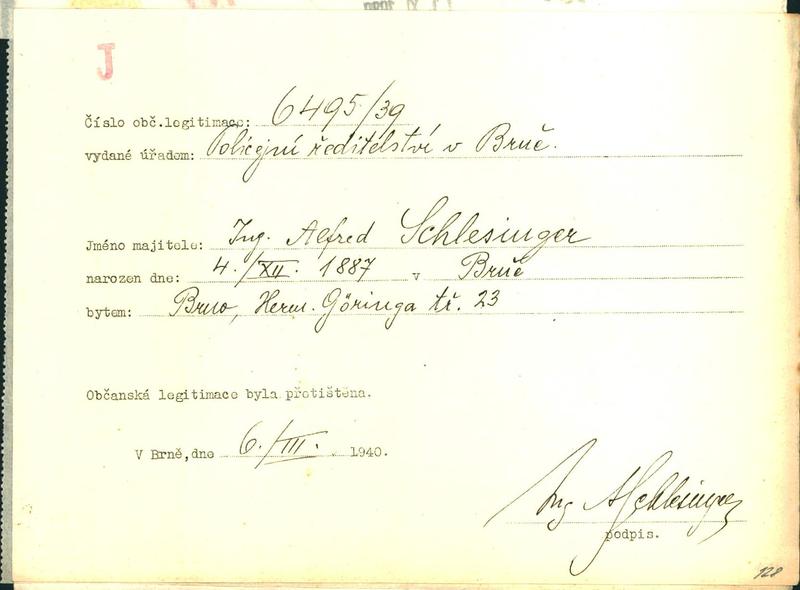 J
Číslo obč.legitimace: 6495/39
vydané úřadem: Policejní ředitelství v Brně.
Jméno majitele: Ing. Alfred Schlesinger
narozen dne: 4./XII. 1887 v Brně
bytem: Brno, Herm. Göringa tř. 23
Občanská legitimace byla přetištěna.
V Brně,dne 6./III. 1940.
Ing ASchlesinger
podpis.
128